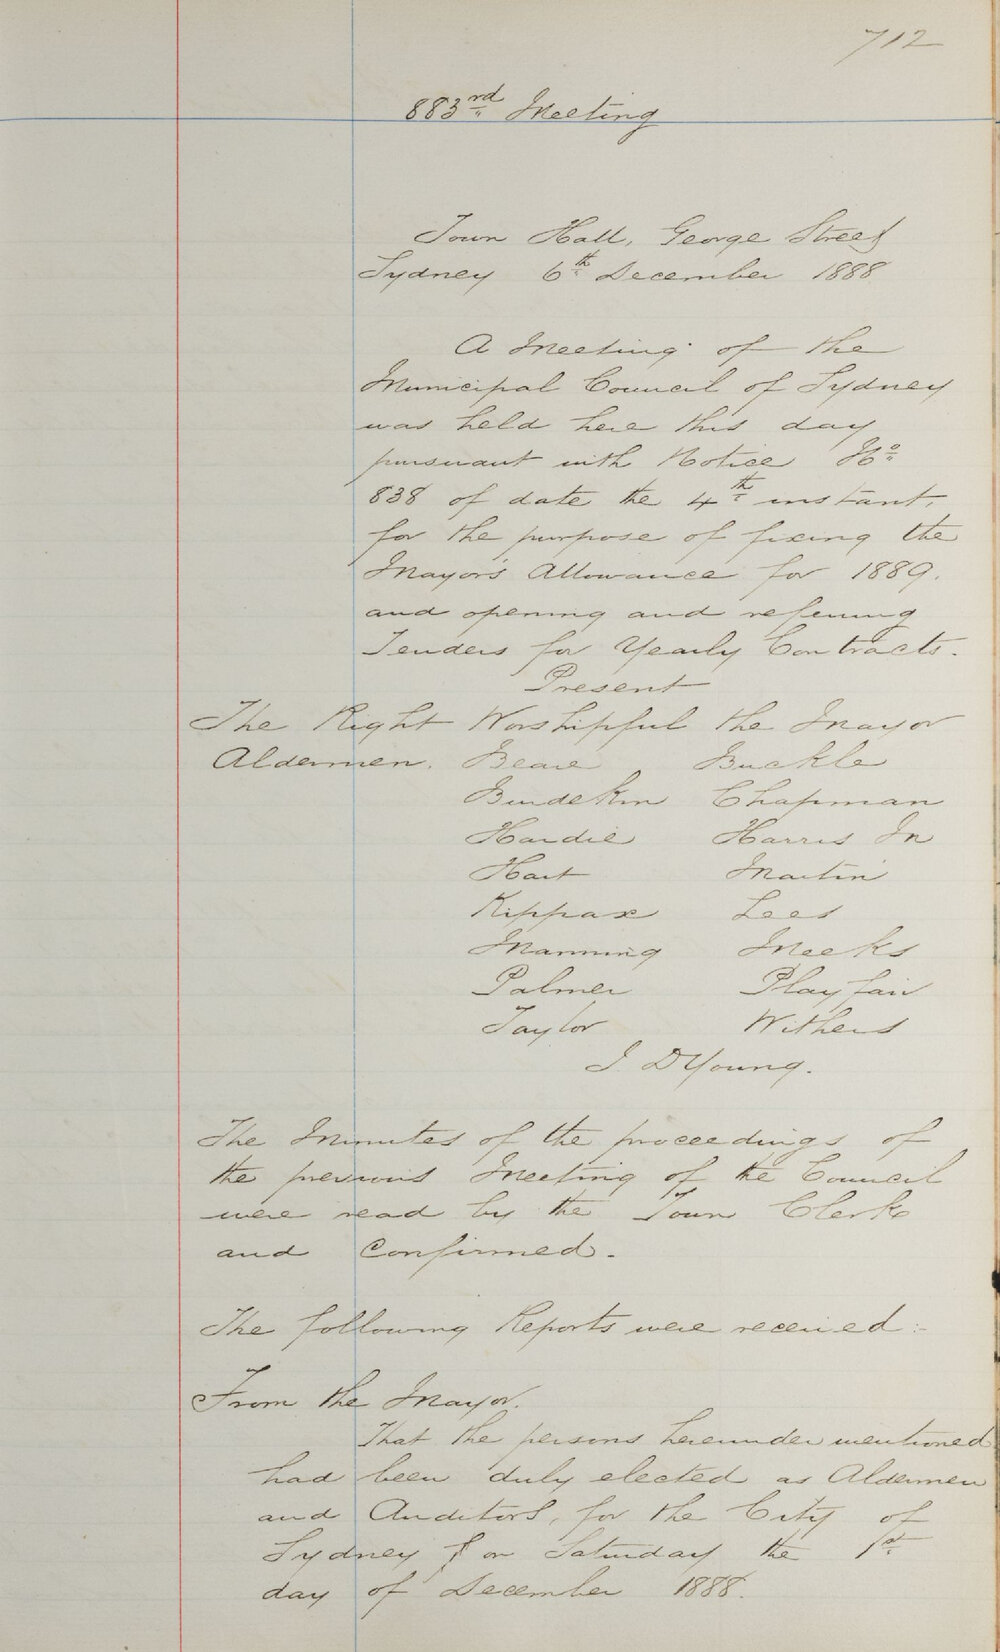 712
883rd Meeting
Town Hall, George Street
Sydney 6th December 1888
A Meeting of the
Municipal Council of Sydney
was held here this day
pursuant with Notice No
838 of date the 4th instant,
for the purpose of fixing the
Mayor's Allowance for 1889.
and opening and referring
Tenders for Yearly Contracts.
Present
The Right Worshipful the Mayor
Aldermen. Beare Buckle
Burdekin Chapman
Hardie Harris Jn
Hart Martin
Kippax Lees
Manning Meeks
Palmer Playfair
Taylor Withers
J. D Young.
The Minutes of the proceedings of
the previous Meeting of the Council
were read by the Town Clerk
and Confirmed.
The following Reports were received:-
From the Mayor.
That the persons hereunder mentioned
had been duly elected as Aldermen
and Auditors, for the City of
Sydney on Saturday the 1st
day of December 1888.